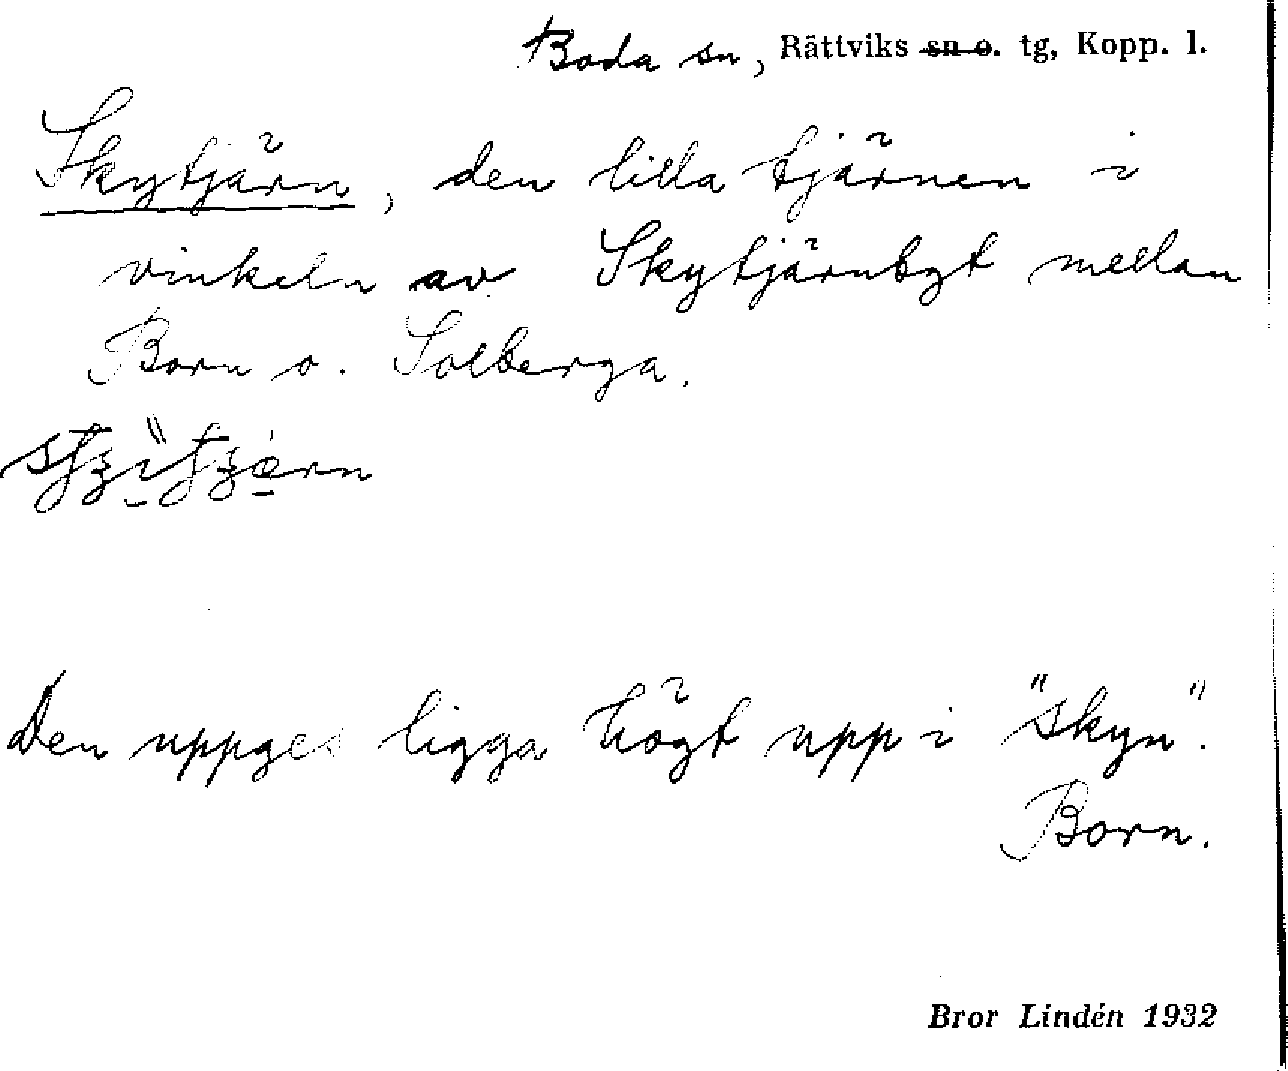 Boda sn, Rättviks sn o. tg, Kopp. l.
Skytjärn, den lilla tjärnen i
vinkeln av Skytjärnbgt mellan
Born o. Solberga.
Den uppges ligga högt uppi "skyn".
Born.
Bror Lindén 1932